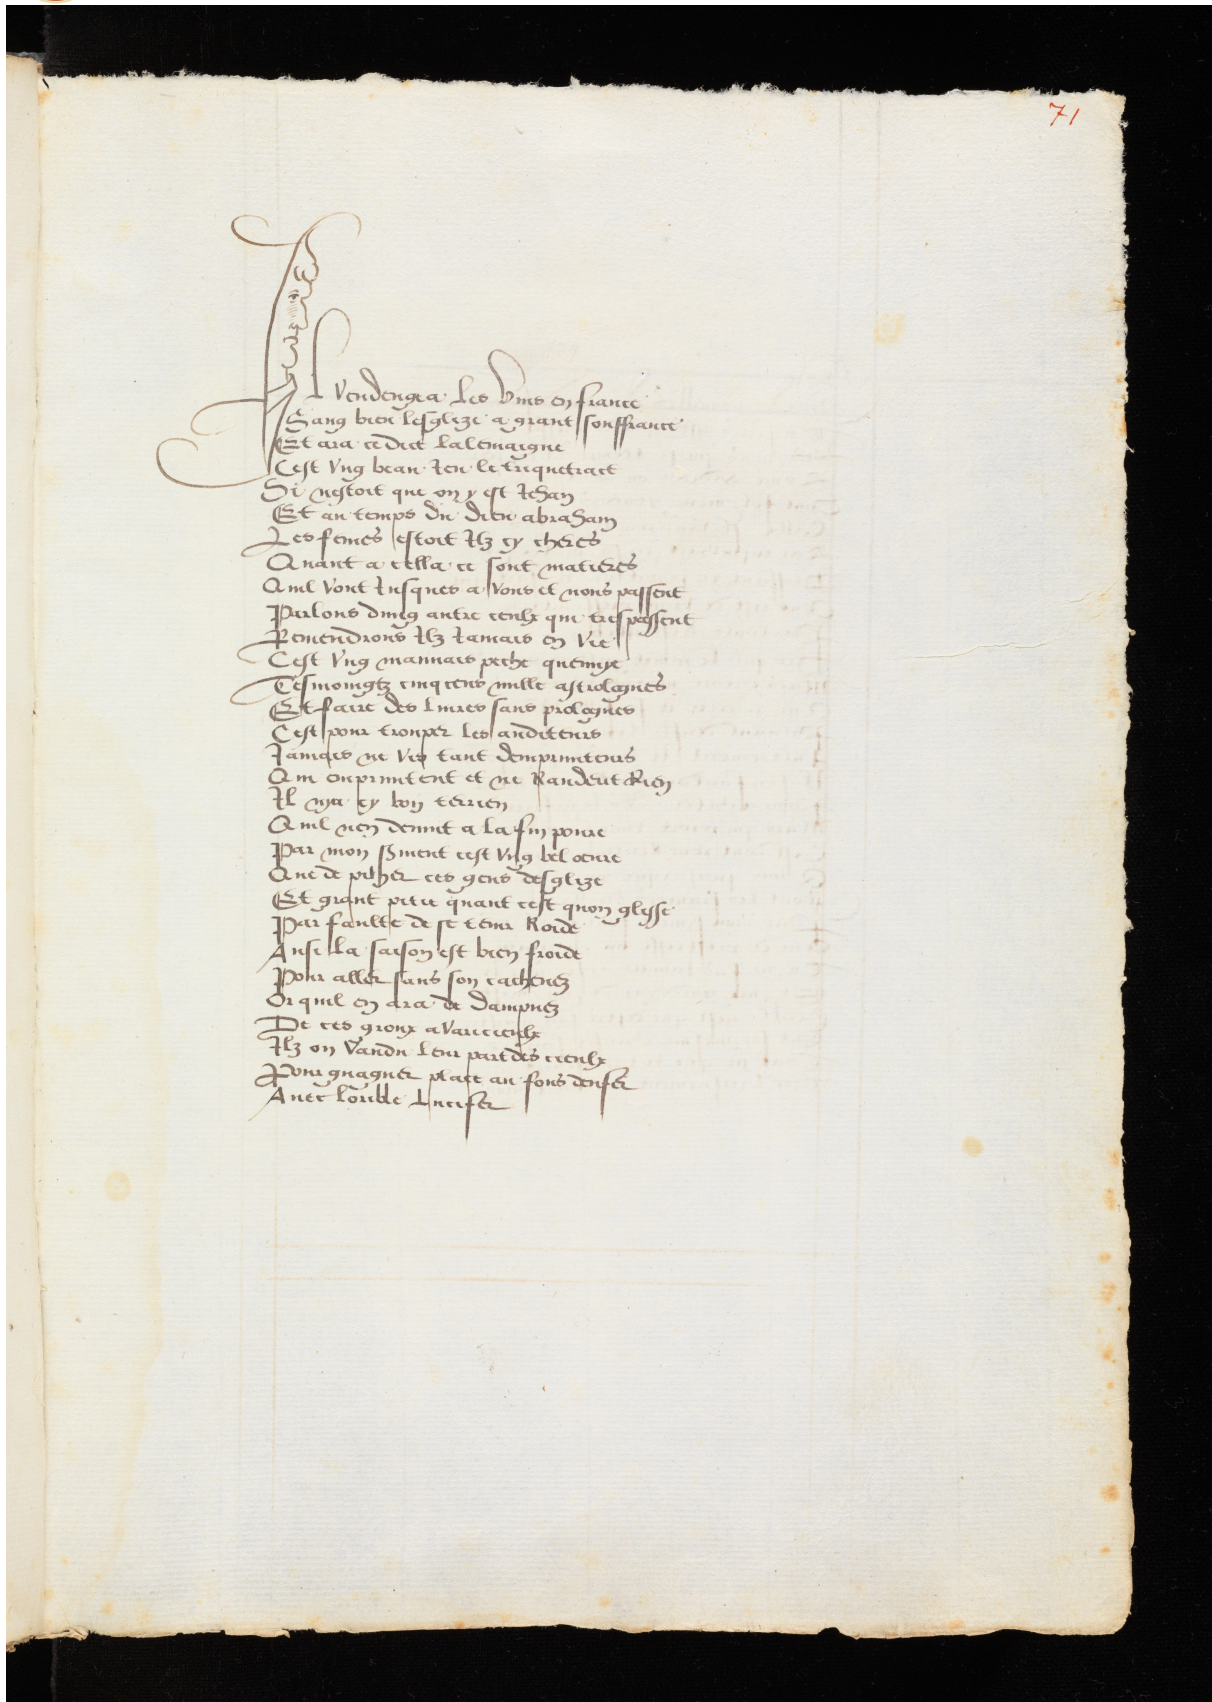 71
Il vendengea les vins en france
Sang bieu lesglize a grant souffrance
Et ara ce dict lalemaigne
Cest vng beau Jeu le triquetract
Si nestoit que on y est Jehan
Et au temps du dieu abraham
Les femes estoit Ilz cy cheres
Quant a cella ce sont matieres
Quil vont Jusques a vous et nous passent
Parlons dung autre ceulx qui trespassent
Remendrons Ilz Jamais en vie
Cest vng mauuais peche quenuye
Tesmoingtz cinq cens mille astrologues
Et faire des liures sans prologues
Cest pour tromper les auditeurs
Jamais ne vis tant demprunteurs
Qui empruntent et ne Randent Rien
Il nya cy bon terrien
Quil nen deuint a la fin poure
Par mon sment cest vng bel oeure
Que de piller ces gens desglize
Et grant pitie quant cest quon glisse
Par faulte de se tenir Roide
Ausi la saison est bien froide
Pour aller sans son cachenez
Or quil en ara de dampnez
De ces groux avaricieulx
Ilz on vandu leur part des cieulx
Pour guagner place au fons denfer
Auec lorible Lucifer